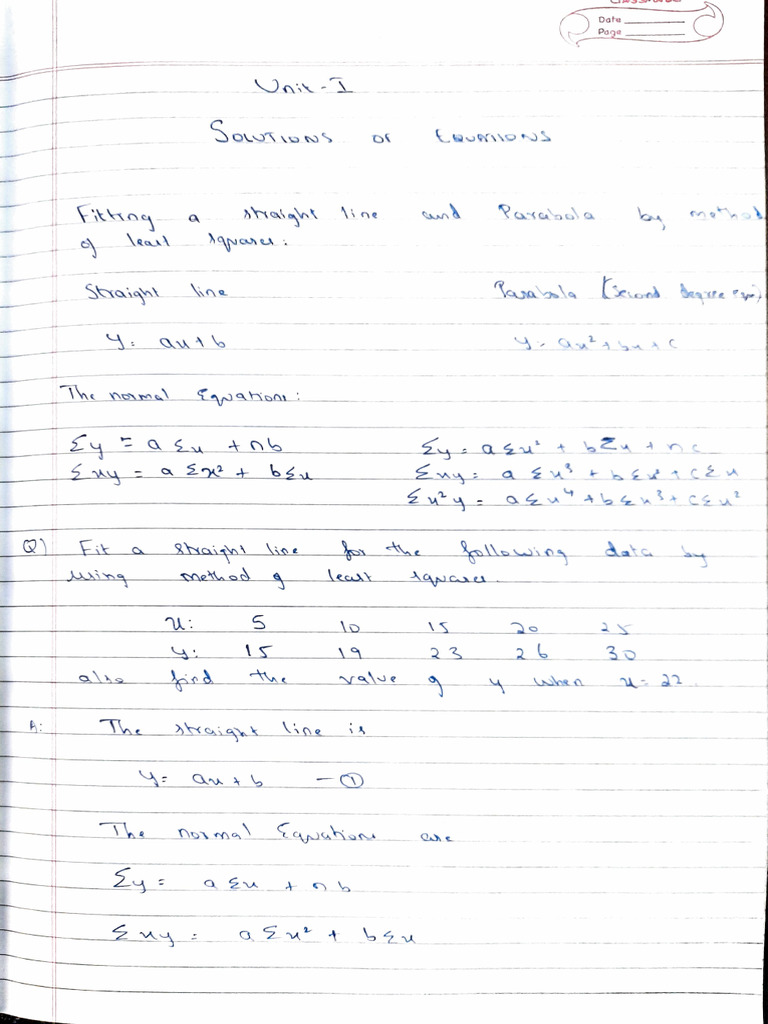 classmate
Date
Page
Unit - I
SOLUTIONS OF EQUATIONS
Fitting a straight line and Parabola by method
of least squares:
Straight line Parabola (second degree eqn)
y = ax+b y = ax²+bx+c
The normal Equations:
Σy = a Σx + nb Σy = a Σx² + bΣx + nc
Σxy = a Σx² + bΣx Σxy = a Σx³ + bΣx² + cΣx
Σx²y = aΣx⁴+bΣx³+cΣx²
Q) Fit a straight line for the following data by
using method of least squares.
x: 5 10 15 20 25
y: 15 19 23 26 30
also find the value of y when x = 22.
A: The straight line is
y = ax+b —①
The normal Equations are
Σy = aΣx + nb
Σxy = aΣx² + bΣx